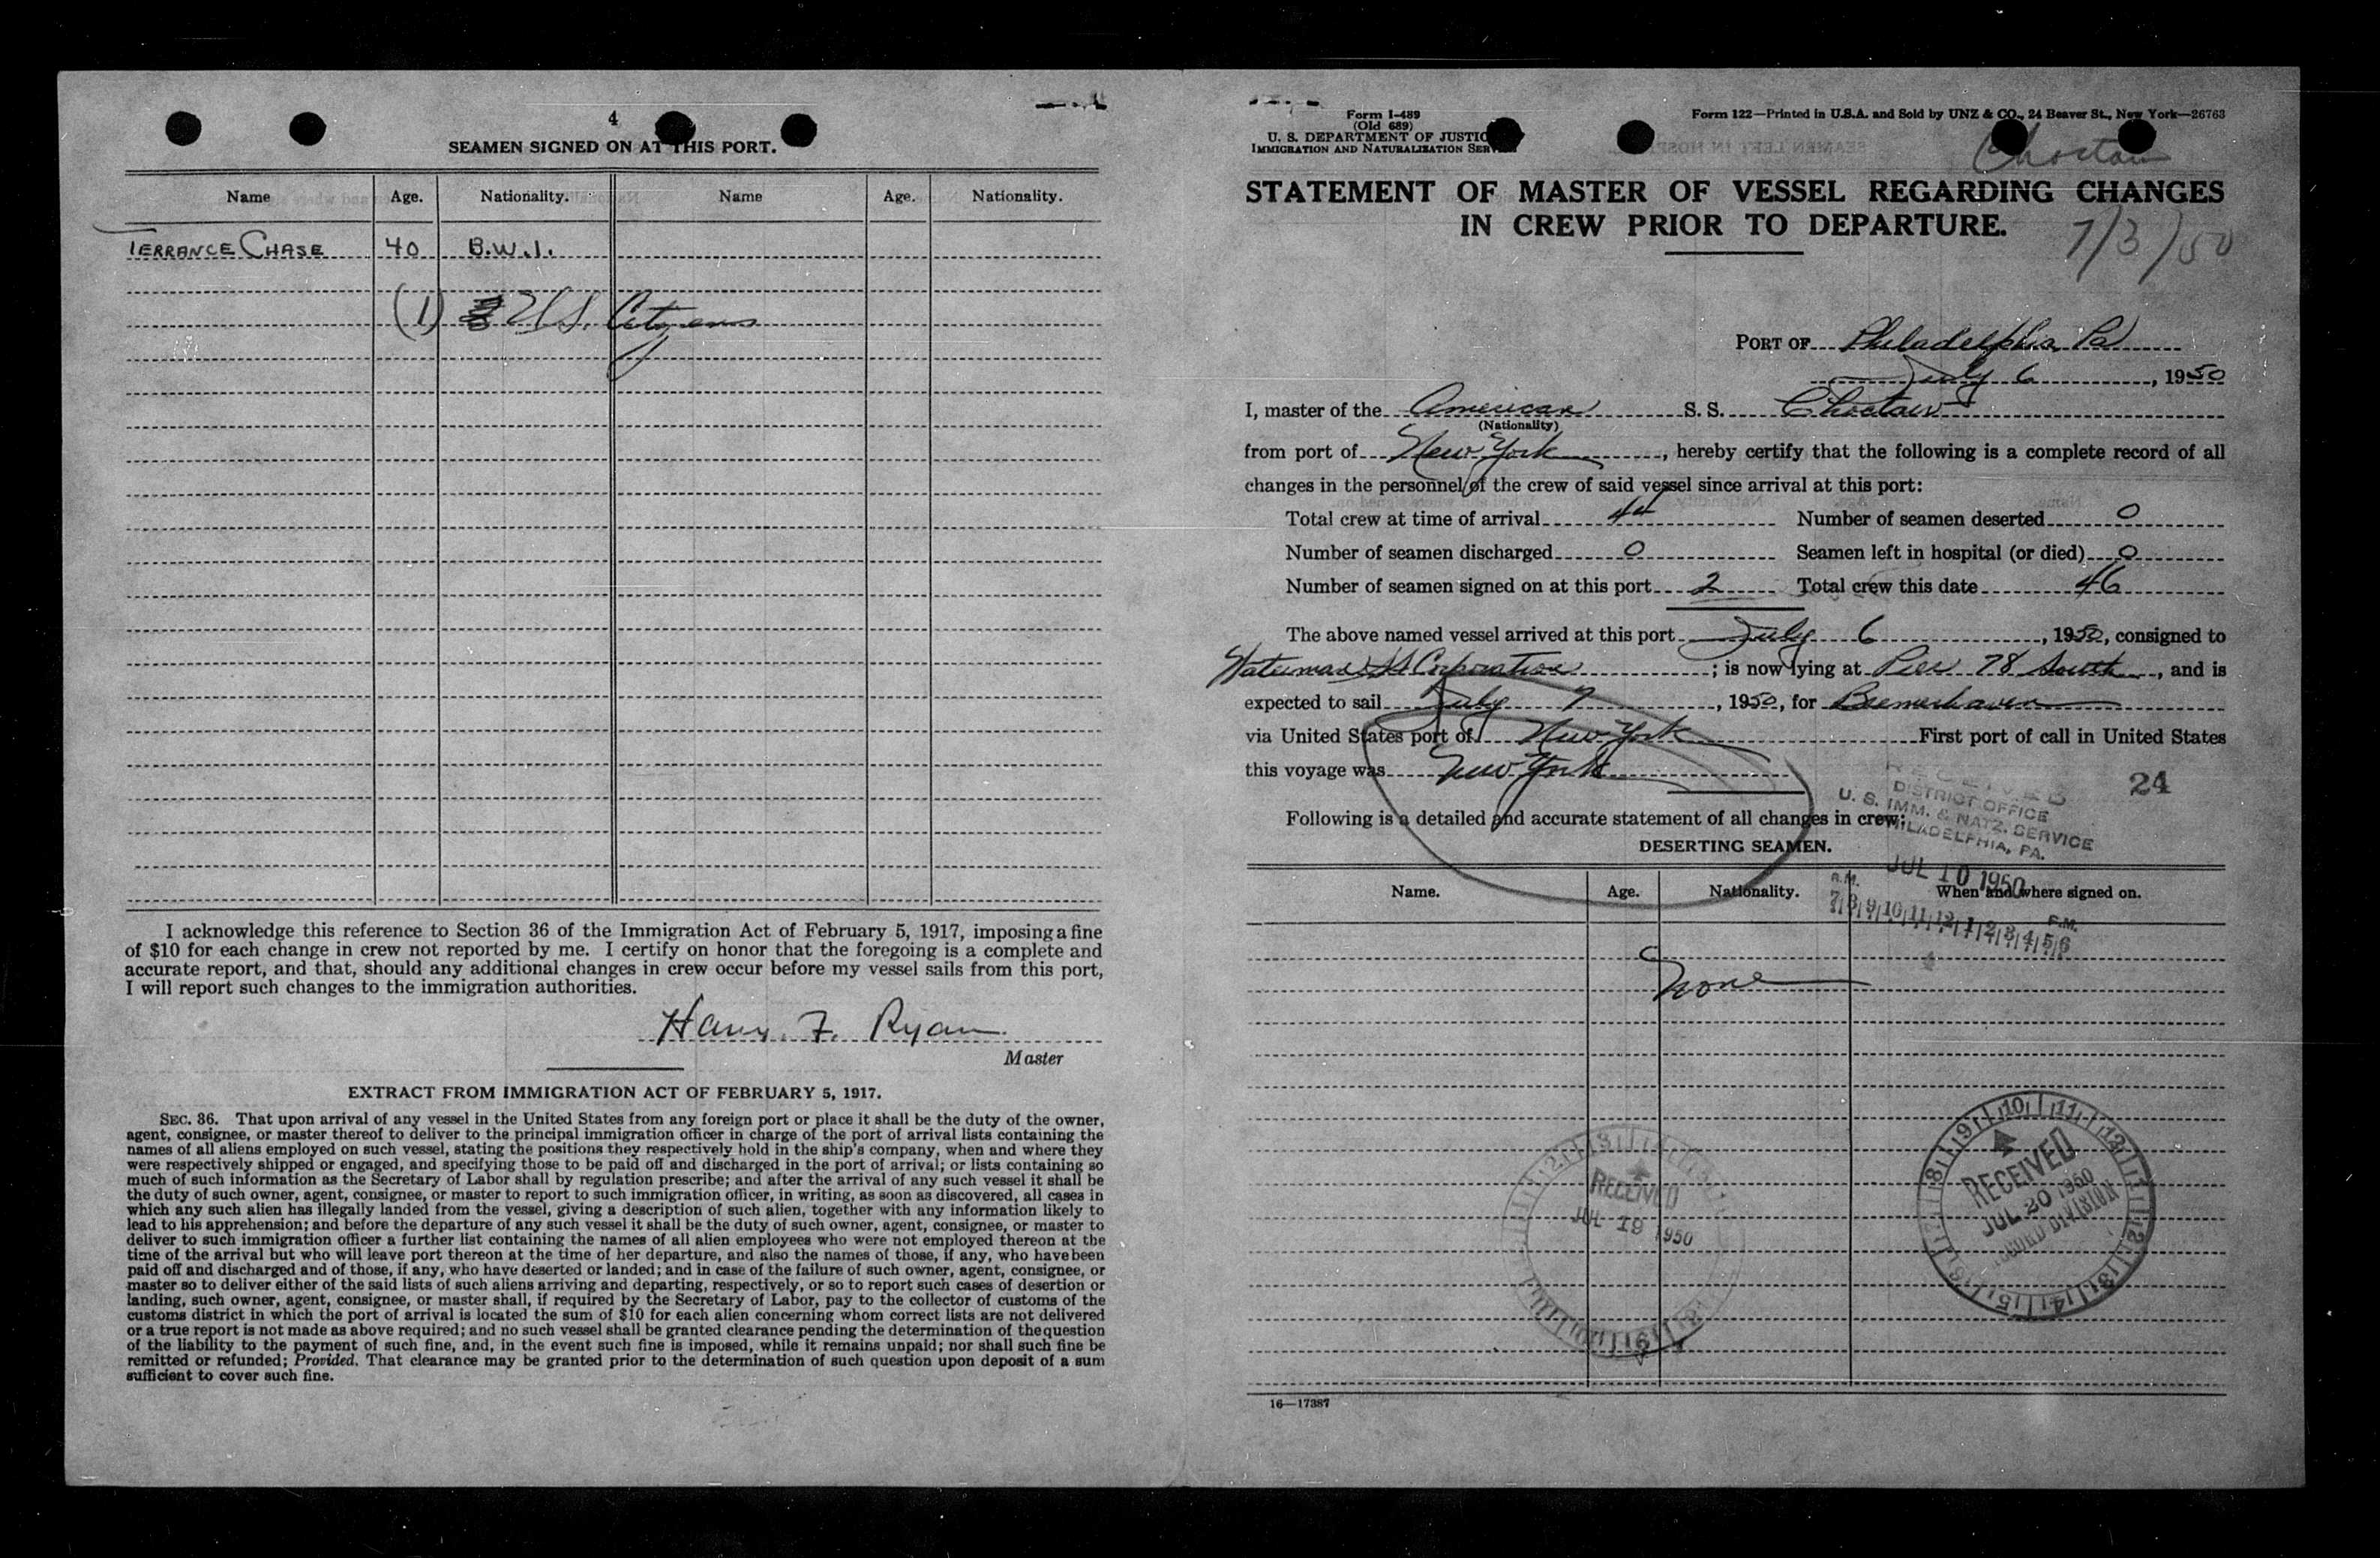 4
SEAMEN SIGNED ON AT THIS PORT.
Name Age. Nationality. Name Age. Nationality.
TERRANCE CHASE 40 B.W.I.
(1) U.S. Citizens
I acknowledge this reference to Section 36 of the Immigration Act of February 5, 1917, imposing a fine
of $10 for each change in crew not reported by me. I certify on honor that the foregoing is a complete and
accurate report, and that, should any additional changes in crew occur before my vessel sails from this port,
I will report such changes to the immigration authorities.
Harry. F. Ryan
Master
EXTRACT FROM IMMIGRATION ACT OF FEBRUARY 5, 1917.
SEC. 36. That upon arrival of any vessel in the United States from any foreign port or place it shall be the duty of the owner,
agent, consignee, or master thereof to deliver to the principal immigration officer in charge of the port of arrival lists containing the
names of all aliens employed on such vessel, stating the positions they respectively hold in the ship's company, when and where they
were respectively shipped or engaged, and specifying those to be paid off and discharged in the port of arrival; or lists containing so
much of such information as the Secretary of Labor shall by regulation prescribe; and after the arrival of any such vessel it shall be
the duty of such owner, agent, consignee, or master to report to such immigration officer, in writing, as soon as discovered, all cases in
which any such alien has illegally landed from the vessel, giving a description of such alien, together with any information likely to
lead to his apprehension; and before the departure of any such vessel it shall be the duty of such owner, agent, consignee, or master to
deliver to such immigration officer a further list containing the names of all alien employees who were not employed thereon at the
time of the arrival but who will leave port thereon at the time of her departure, and also the names of those, if any, who have been
paid off and discharged and of those, if any, who have deserted or landed; and in case of the failure of such owner, agent, consignee, or
master so to deliver either of the said lists of such aliens arriving and departing, respectively, or so to report such cases of desertion or
landing, such owner, agent, consignee, or master shall, if required by the Secretary of Labor, pay to the collector of customs of the
customs district in which the port of arrival is located the sum of $10 for each alien concerning whom correct lists are not delivered
or a true report is not made as above required; and no such vessel shall be granted clearance pending the determination of the question
of the liability to the payment of such fine, and, in the event such fine is imposed, while it remains unpaid; nor shall such fine be
remitted or refunded; Provided, That clearance may be granted prior to the determination of such question upon deposit of a sum
sufficient to cover such fine.
Form I-489
(Old 689)
U. S. DEPARTMENT OF JUSTICE
IMMIGRATION AND NATURALIZATION SERVICE
Form 122—Printed in U.S.A. and Sold by UNZ & CO., 24 Beaver St., New York—26763
Choctaw
STATEMENT OF MASTER OF VESSEL REGARDING CHANGES
IN CREW PRIOR TO DEPARTURE.
7/3/50
PORT OF Philadelphia, Pa
July 6, 1950
I, master of the American S. S. Choctaw
(Nationality)
from port of New York, hereby certify that the following is a complete record of all
changes in the personnel of the crew of said vessel since arrival at this port:
Total crew at time of arrival 44 Number of seamen deserted 0
Number of seamen discharged 0 Seamen left in hospital (or died) 0
Number of seamen signed on at this port 2 Total crew this date 46
The above named vessel arrived at this port July 6, 1950, consigned to
Waterman SS Corporation; is now lying at Pier 78 South, and is
expected to sail July 7, 1950, for Bremerhaven
via United States port of New York First port of call in United States
this voyage was New York
24
Following is a detailed and accurate statement of all changes in crew:
RECEIVED
DISTRICT OFFICE
U. S. IMM. & NATZ. SERVICE
PHILADELPHIA, PA.
JUL 10 1950
A.M. P.M.
7|8|9|10|11|12|1|2|3|4|5|6
DESERTING SEAMEN.
Name. Age. Nationality. When and where signed on.
None
RECEIVED
JUL 19 1950
RECEIVED
JUL 20 1950
RECORD DIVISION
16—17387